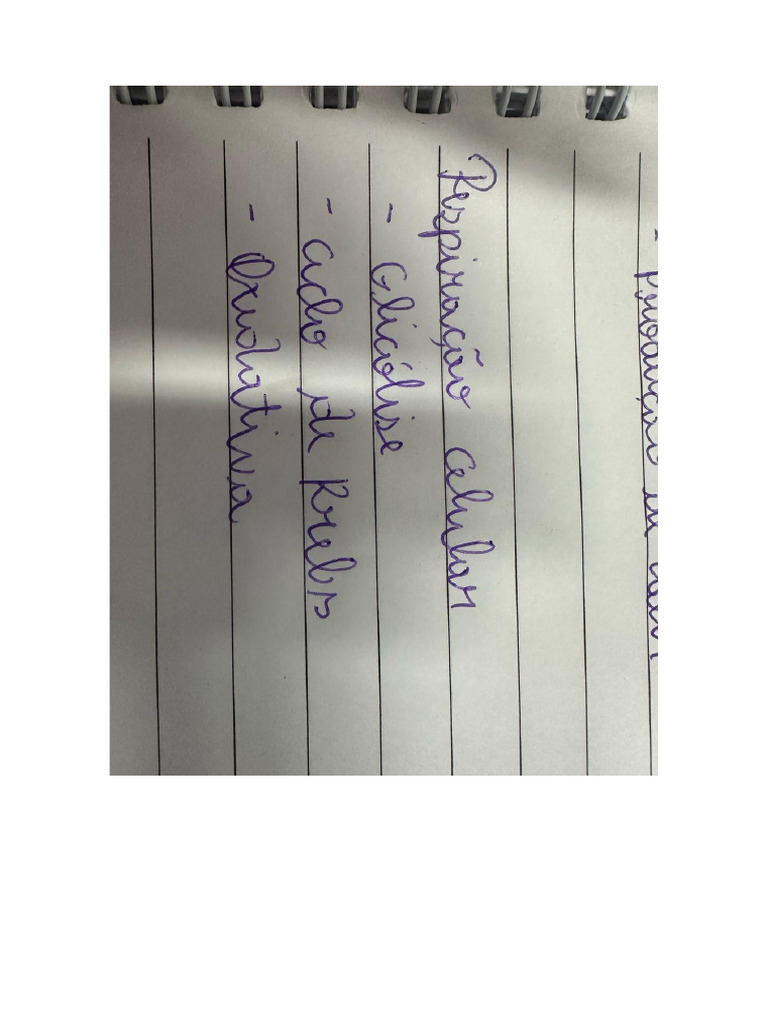 - Produção de
Respiração celular
- Glicólise
- ciclo de Krebs
- Oxidativa